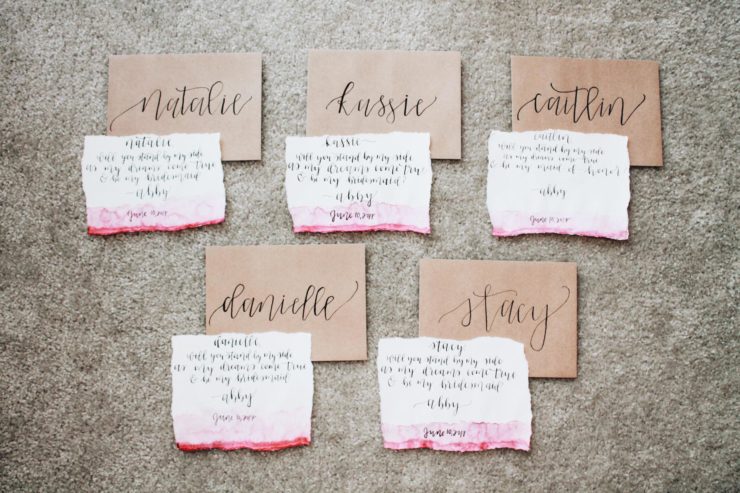 natalie
kassie
caitlin
natalie
will you stand by my side
as my dreams come true
& be my bridesmaid?
-abby
June 10, 2017
kassie
will you stand by my side
as my dreams come true
& be my bridesmaid?
-abby
June 10, 2017
caitlin
will you stand by my side
as my dreams come true
& be my maid of honor
-abby
June 10, 2017
danielle
stacy
danielle
will you stand by my side
as my dreams come true
& be my bridesmaid
-abby
June 10, 2017
stacy
will you stand by my side
as my dreams come true
& be my bridesmaid?
-abby
June 10, 2017